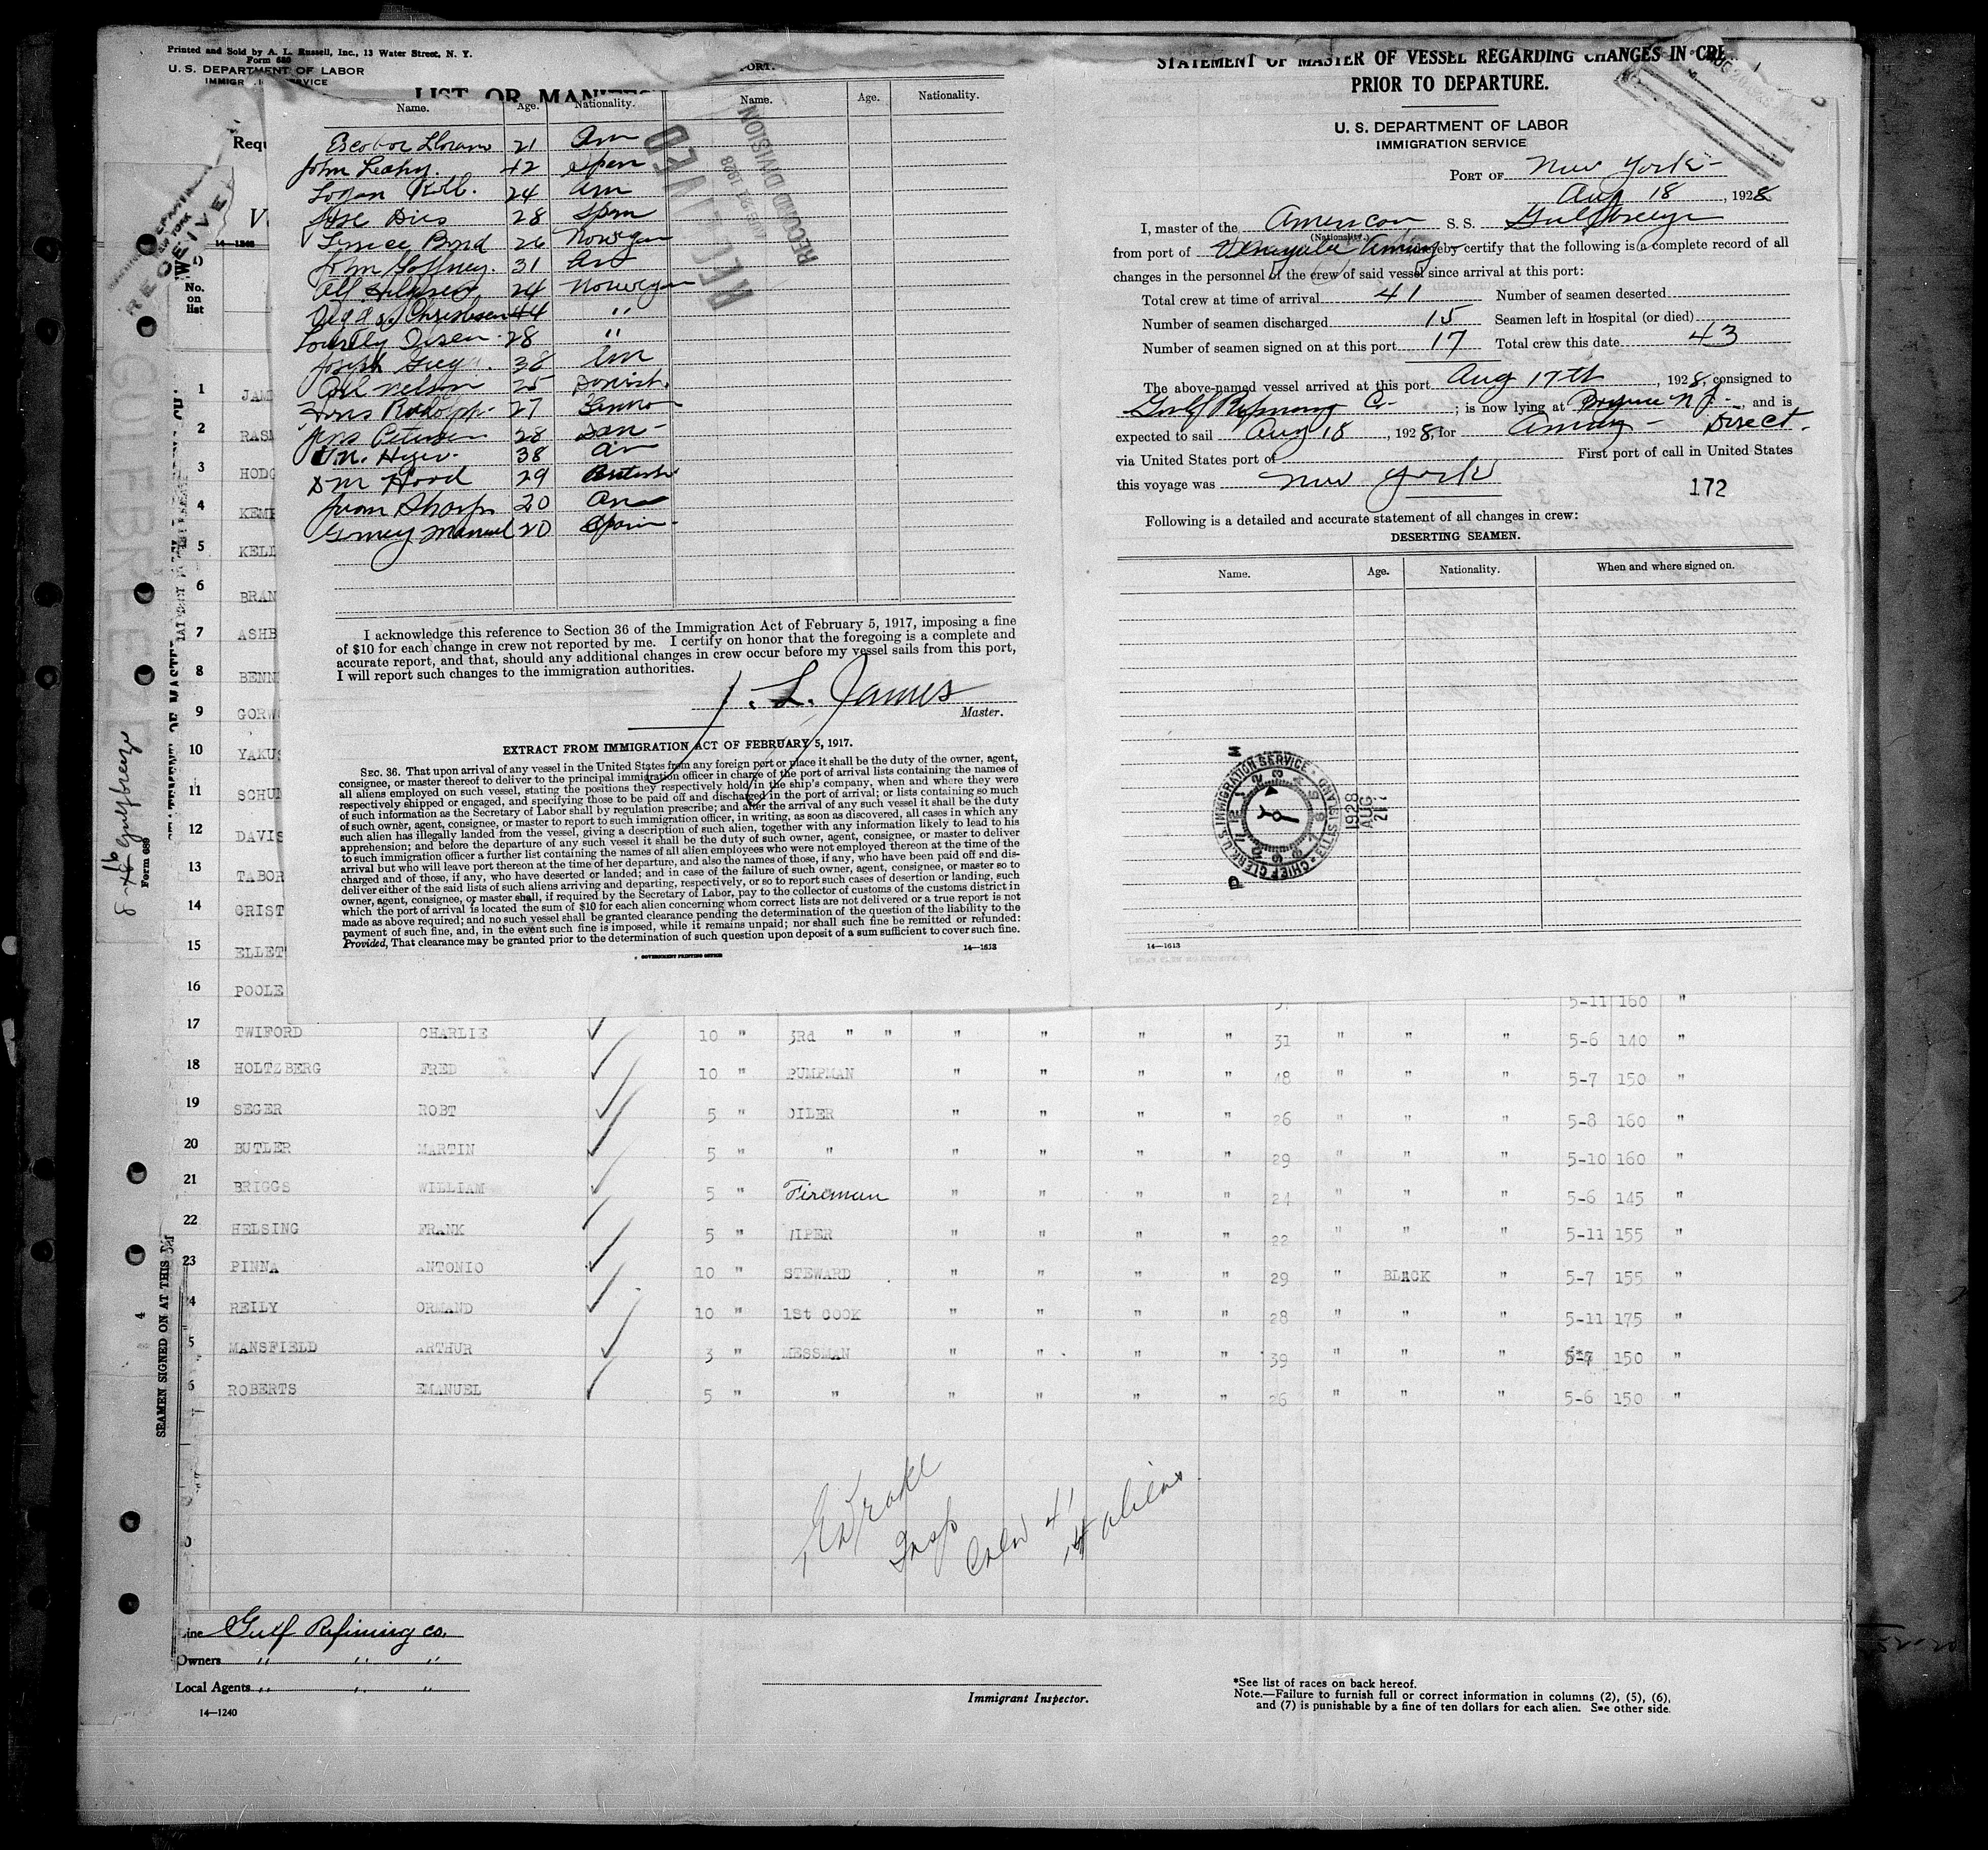 Printed and Sold by A. L. Russell, Inc., 13 Water Street, N. Y.
Form 689
U. S. DEPARTMENT OF LABOR
IMMIGR SERVICE
LIST OR MANIFES
Requ
No.
on
list
Name. Age. Nationality. Name. Age. Nationality.
21 Am
John Leahy. 42 Span
Logan 24 Am
Jose Dies 28 Span
Bond 26 Norwegan
John Gaffney. 31 Am
Alf 24 Norwegan
Christensen 44 "
Olsen 28 "
Joseph Greg 38 Am
Nelson 25 Danish.
27
Jens Petersen 28 Dan-
38 Am
D M Hood 29 British
Juan Sharp 20 Am
Manuel 20 Span.
RECEIVED
AUG 21 1928
RECORD DIVISION
I acknowledge this reference to Section 36 of the Immigration Act of February 5, 1917, imposing a fine
of $10 for each change in crew not reported by me. I certify on honor that the foregoing is a complete and
accurate report, and that, should any additional changes in crew occur before my vessel sails from this port,
I will report such changes to the immigration authorities.
J. L. James
Master.
EXTRACT FROM IMMIGRATION ACT OF FEBRUARY 5, 1917.
SEC. 36. That upon arrival of any vessel in the United States from any foreign port or place it shall be the duty of the owner, agent,
consignee, or master thereof to deliver to the principal immigration officer in charge of the port of arrival lists containing the names of
all aliens employed on such vessel, stating the positions they respectively hold in the ship's company, when and where they were
respectively shipped or engaged, and specifying those to be paid off and discharged in the port of arrival; or lists containing so much
of such information as the Secretary of Labor shall by regulation prescribe; and after the arrival of any such vessel it shall be the duty
of such owner, agent, consignee, or master to report to such immigration officer, in writing, as soon as discovered, all cases in which any
such alien has illegally landed from the vessel, giving a description of such alien, together with any information likely to lead to his
apprehension; and before the departure of any such vessel it shall be the duty of such owner, agent, consignee, or master to deliver
to such immigration officer a further list containing the names of all alien employees who were not employed thereon at the time of the
arrival but who will leave port thereon at the time of her departure, and also the names of those, if any, who have been paid off and dis-
charged and of those, if any, who have deserted or landed; and in case of the failure of such owner, agent, consignee, or master so to
deliver either of the said lists of such aliens arriving and departing, respectively, or so to report such cases of desertion or landing, such
owner, agent, consignee, or master shall, if required by the Secretary of Labor, pay to the collector of customs of the customs district in
which the port of arrival is located the sum of $10 for each alien concerning whom correct lists are not delivered or a true report is not
made as above required; and no such vessel shall be granted clearance pending the determination of the question of the liability to the
payment of such fine, and, in the event such fine is imposed, while it remains unpaid; nor shall such fine be remitted or refunded:
Provided, That clearance may be granted prior to the determination of such question upon deposit of a sum sufficient to cover such fine.
14—1613
GOVERNMENT PRINTING OFFICE
STATEMENT OF MASTER OF VESSEL REGARDING CHANGES IN CRE
PRIOR TO DEPARTURE.
U. S. DEPARTMENT OF LABOR
IMMIGRATION SERVICE
PORT OF New York
Aug 18, 1928
I, master of the American S. S. Gulfbreeze
(Nationality.)
from port of hereby certify that the following is a complete record of all
changes in the personnel of the crew of said vessel since arrival at this port:
Total crew at time of arrival 41 Number of seamen deserted
Number of seamen discharged 15 Seamen left in hospital (or died)
Number of seamen signed on at this port 17 Total crew this date 43
The above-named vessel arrived at this port Aug 17th, 1928, consigned to
Gulf Refining Co ; is now lying at Bayonne N J- and is
expected to sail Aug 18, 1928, for Direct.
via United States port of First port of call in United States
this voyage was New York 172
Following is a detailed and accurate statement of all changes in crew:
DESERTING SEAMEN.
Name. Age. Nationality. When and where signed on.
CHIEF CLERK U.S. IMMIGRATION SERVICE ELLIS ISLAND
1928 AUG 21
14—1613
1 JAM
2 RASM
3 HODG
4 KEMP
5 KELL
6 BRAN
7 ASHB
8 BENN
9 GORW
10 YAKUS
11 SCHUM
12 DAVIS
13 TABOR
14 CRIST
15 ELLET
16 POOLE 5-11 160 "
17 TWIFORD CHARLIE 10 " 3Rd " " " " " " 31 " " " 5-6 140 "
18 HOLTZBERG FRED 10 " PUMPMAN " " " " 48 " " " 5-7 150 "
19 SEGER ROBT 5 " OILER " " " " 26 " " " 5-8 160 "
20 BUTLER MARTIN 5 " " " " " " 29 " " " 5-10 160 "
21 BRIGGS WILLIAM 5 " Fireman " " " " 24 " " " 5-6 145 "
22 HELSING FRANK 5 " WIPER " " " " 22 " " " 5-11 155 "
23 PINNA ANTONIO 10 " STEWARD " " " " 29 " BLACK " 5-7 155 "
4 REILY ORMAND 10 " 1st COOK " " " " 28 " " " 5-11 175 "
5 MANSFIELD ARTHUR 3 " MESSMAN " " " " 39 " " " 150 "
6 ROBERTS EMANUEL 5 " " " " " " 26 " " " 5-6 150 "
Insp
Crew 41
aliens
Line Gulf Refining Co.
Owners " " "
Local Agents " " "
14—1240
Immigrant Inspector.
*See list of races on back hereof.
Note.—Failure to furnish full or correct information in columns (2), (5), (6),
and (7) is punishable by a fine of ten dollars for each alien. See other side.
SEAMEN SIGNED ON AT THIS
GULFBREEZE
Gulfbreeze
Form 689
RECEIVE